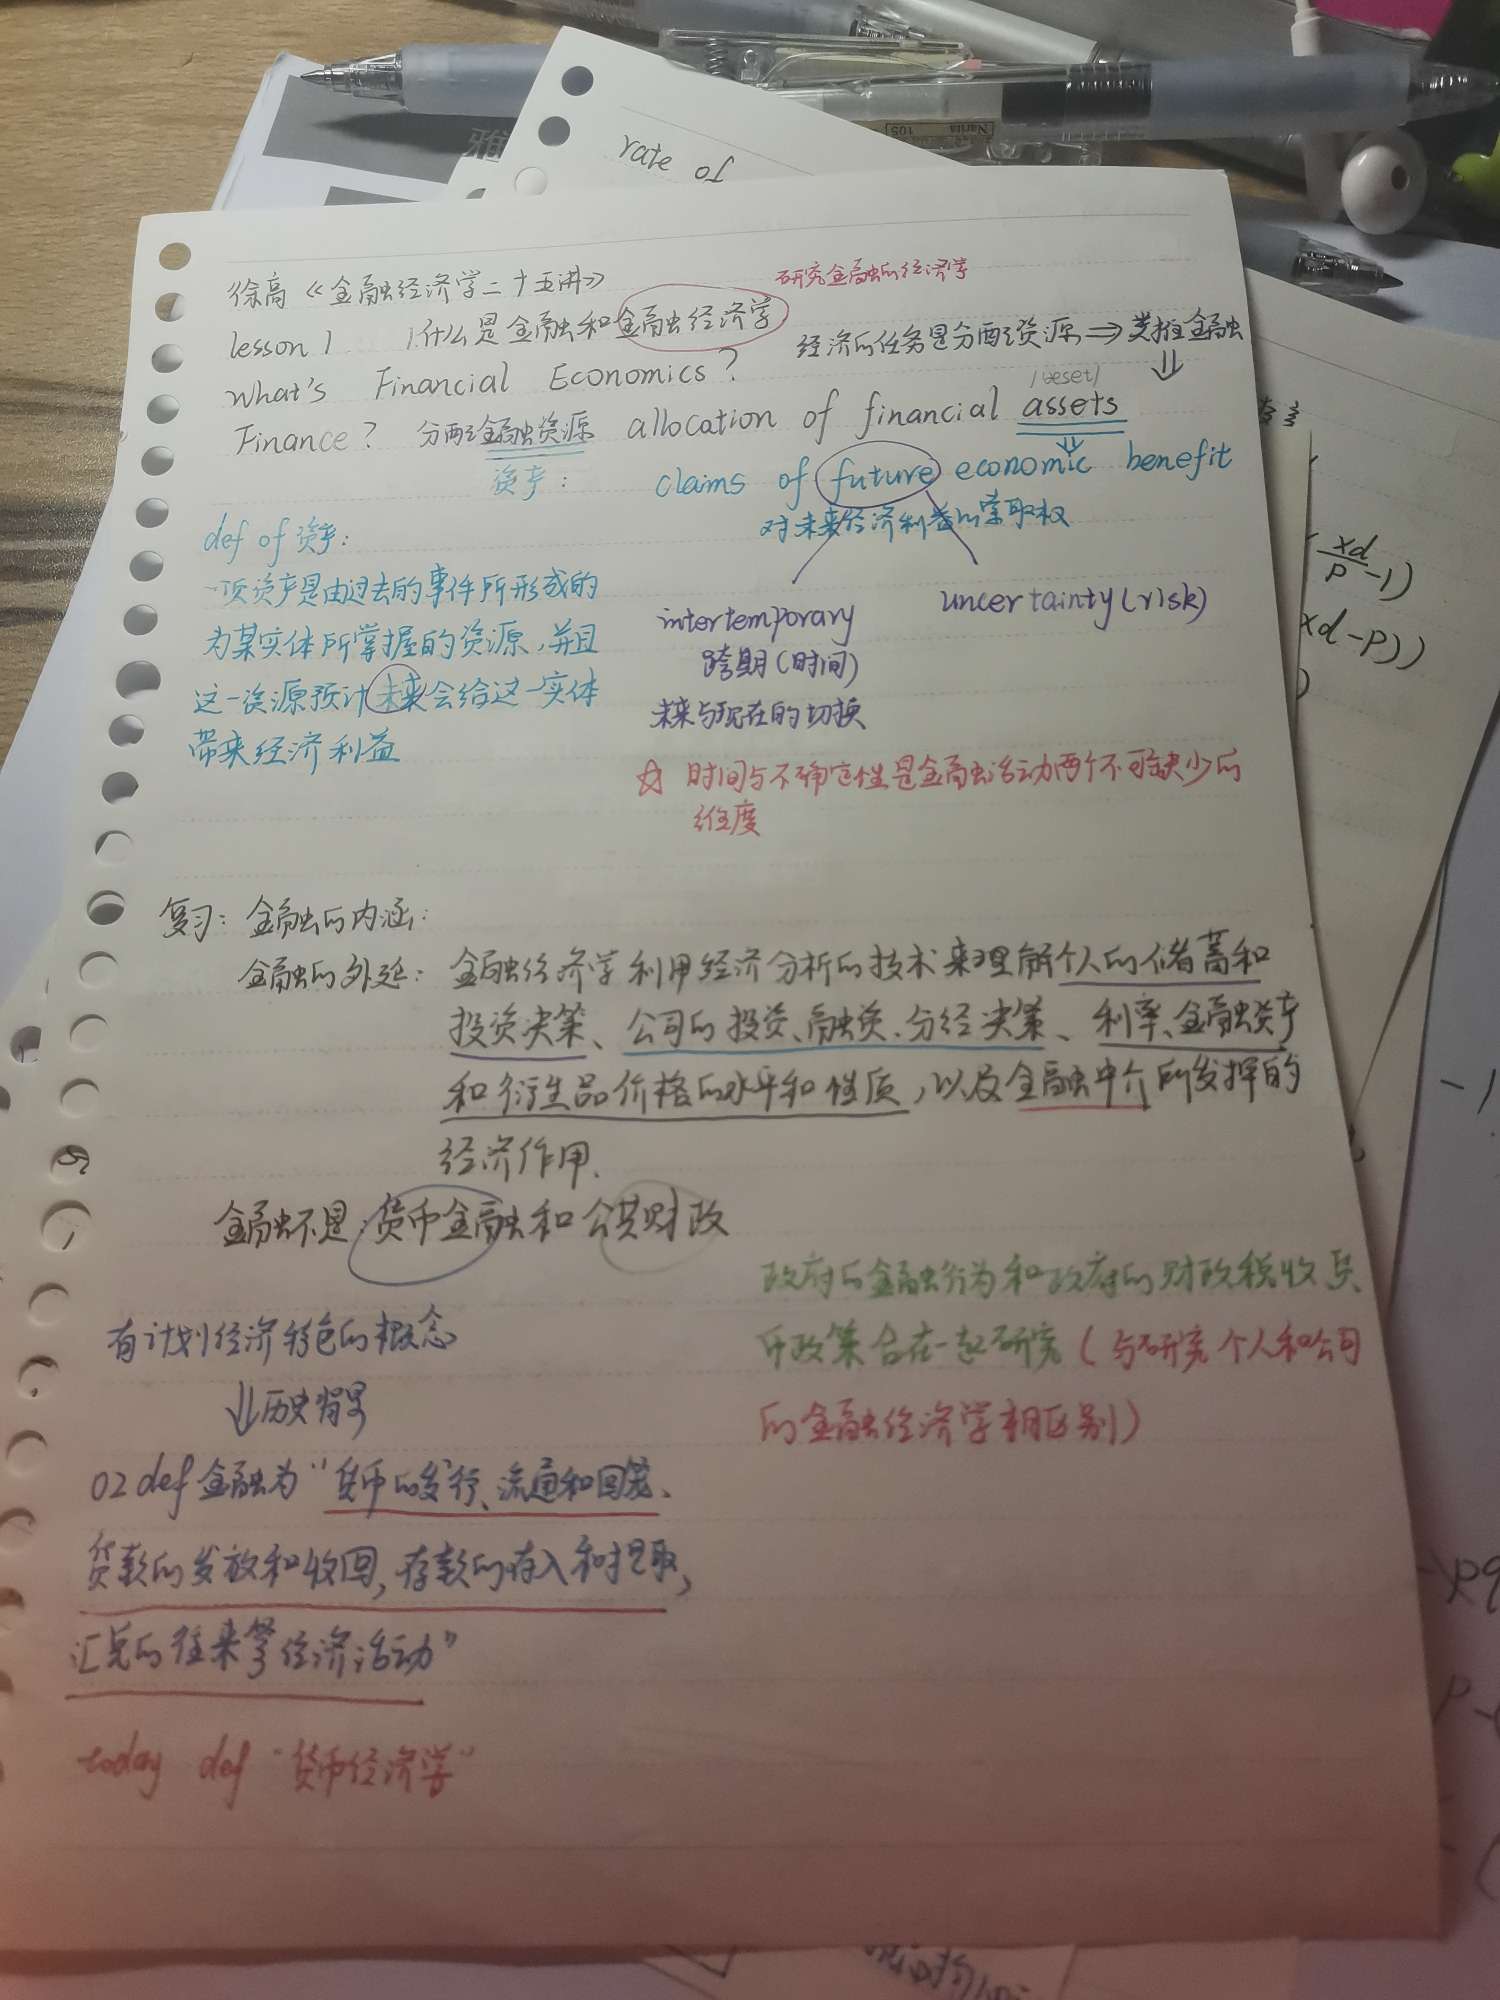 雅
Narita
105
rate of
徐高《金融经济学二十五讲》
研究金融的经济学
lesson 1 1.什么是金融和金融经济学
经济的任务是分配资源⇒类推金融
What's Financial Economics?
Finance? 分配金融资源 allocation of financial assets
资产: claims of future economic benefit
对未来经济利益的索取权
def of 资产:
一项资产是由过去的事件所形成的
为某实体所掌握的资源,并且
这一资源预计未来会给这一实体
带来经济利益
intertemporary
uncertainty(risk)
跨期(时间)
未来与现在的切换
☆ 时间与不确定性是金融活动两个不可缺少的
维度
复习: 金融的内涵:
金融的外延: 金融经济学利用经济分析的技术来理解个人的储蓄和
投资决策、公司的投资、融资、分经决策、利率、金融资产
和衍生品价格的水平和性质,以及金融中介所发挥的
经济作用.
金融不是:货币金融和公共财政
政府的金融行为和政府的财政税收与
币政策合在一起研究(与研究个人和公司
的金融经济学相区别)
有计划经济特色的概念
↓历史背景
02 def 金融为“货币的发行、流通和回笼、
货款的发放和收回,存款的存入和提取,
汇兑的往来等经济活动”
today def “货币经济学”
xd
p
-1)
xd-p))
)
-1